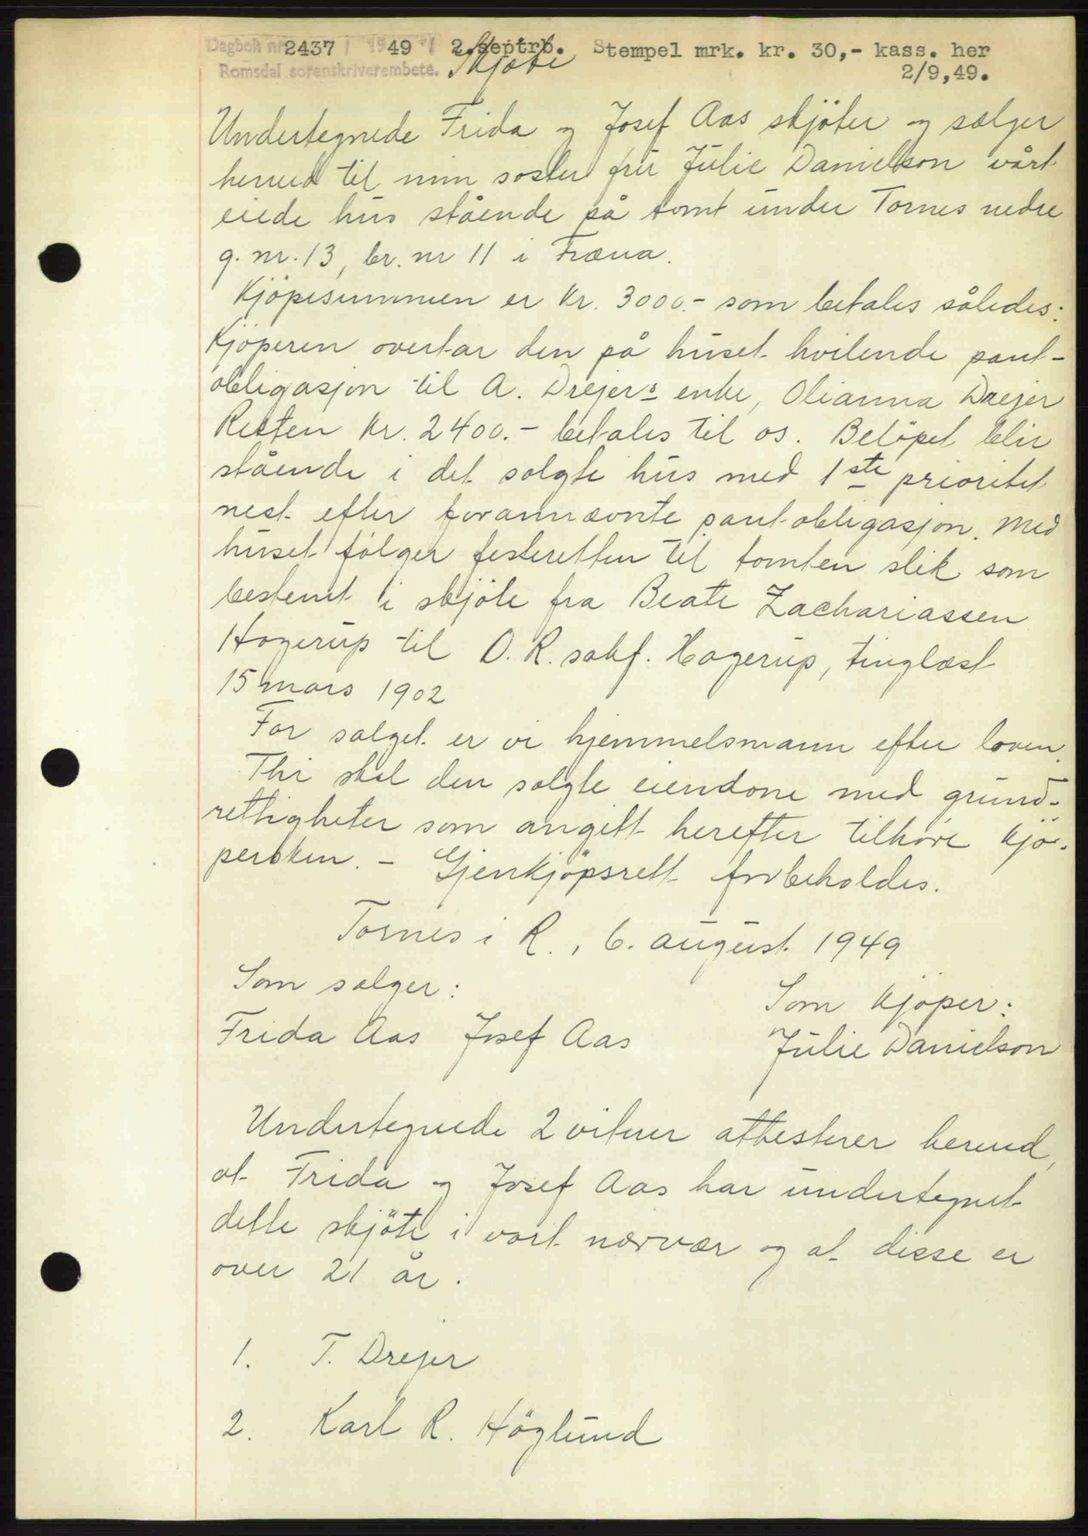 Dagbok nr. 2437 / 1949 / 2.septrb. Stempel mrk. kr. 30,- kass. her
Romsdal sorenskriverembete. 2/9,49.
Skjöte
Undertegnede Frida og Josef Aas skjöter og sælger
herved til min søster fru Julie Danielson vårt
eiede hus stående på tomt under Tornes nedre
g. nr. 13, br. nr 11 i Fræna.
Kjöpesummen er kr. 3000.- som betales således:
Kjöperen overtar den på huset hvilende pant-
obligasjon til A. Drejers enke, Olianna Drejer
Resten kr. 2400.- betales til os. Belöpet blir
stående i det solgte hus med 1ste prioritet
nest efter forannævnte pantobligasjon. Med
huset fölger festeretten til tomten slik som
bestemt i skjöte fra Beate Zachariassen
Hagerup til O. R. sakf. Hagerup, tinglæst
15 mars 1902
For salget er vi hjemmelsmann efter loven.
Thi skal den solgte eiendone med grund-
rettigheter som angitt herefter tilhöre kjö-
persken. - Gjenkjöpsrett forbeholdes.
Tornes i R., 6. august 1949
Som selger:
Som kjöper:
Frida Aas Josef Aas
Julie Danielson
Undertegnede 2 vitner attesterer herved,
at Frida og Josef Aas har undertegnet
dette skjöte i vort nærvær og at disse er
over 21 år.
1. T. Drejer
2. Karl R. Höglund